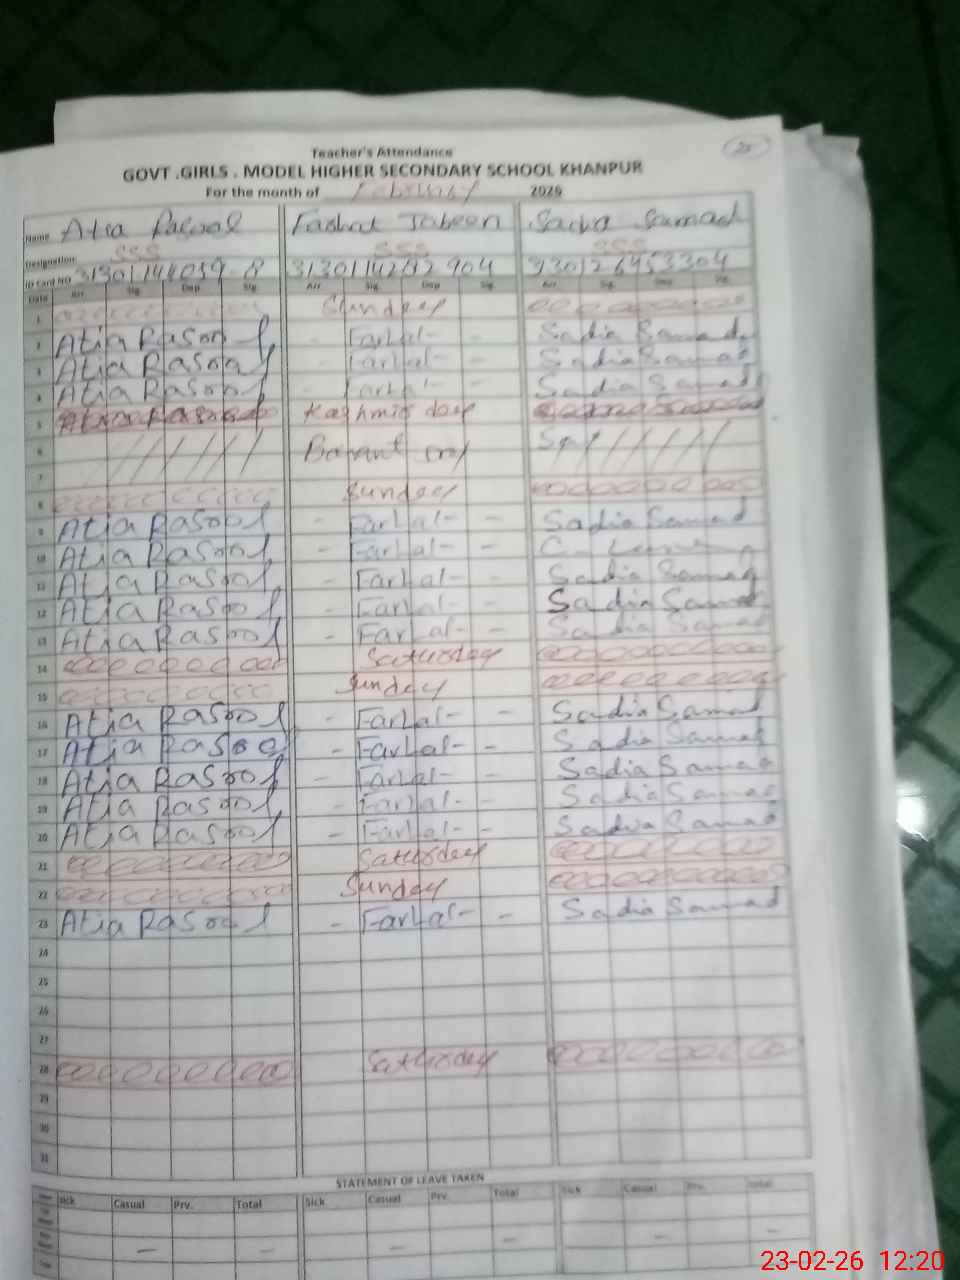 25
Teacher's Attendance
GOVT .GIRLS . MODEL HIGHER SECONDARY SCHOOL KHANPUR
For the month of February 2026
Name Atia Rasool Farhat Jabeen Sadia Samad
Designation SSS SSS SSS
ID Card NO
Date Arr Sig Dep Sig Arr Sig Dep Sig Arr Sig Dep Sig
1 Sunday
2 Atia Rasool - Farhat - Sadia Samad
3 Atia Rasool - Farhat - Sadia Samad
4 Atia Rasool - Farhat - Sadia Samad
5 Kashmir day
6
7
8 Sunday
9 Atia Rasool - Farhat - Sadia Samad
10 Atia Rasool - Farhat -
11 Atia Rasool - Farhat - Sadia Samad
12 Atia Rasool - Farhat - Sadia Samad
13 Atia Rasool - Farhat - Sadia Samad
14 Saturday
15 Sunday
16 Atia Rasool - Farhat - Sadia Samad
17 Atia Rasool - Farhat - Sadia Samad
18 Atia Rasool - Farhat - Sadia Samad
19 Atia Rasool - Farhat - Sadia Samad
20 Atia Rasool - Farhat - Sadia Samad
21 Saturday
22 Sunday
23 Atia Rasool - Farhat - Sadia Samad
24
25
26
27
28 Saturday
29
30
31
STATEMENT OF LEAVE TAKEN
Sick Casual Prv. Total Sick Casual Prv. Total Sick Casual Prv. Total
23-02-26 12:20